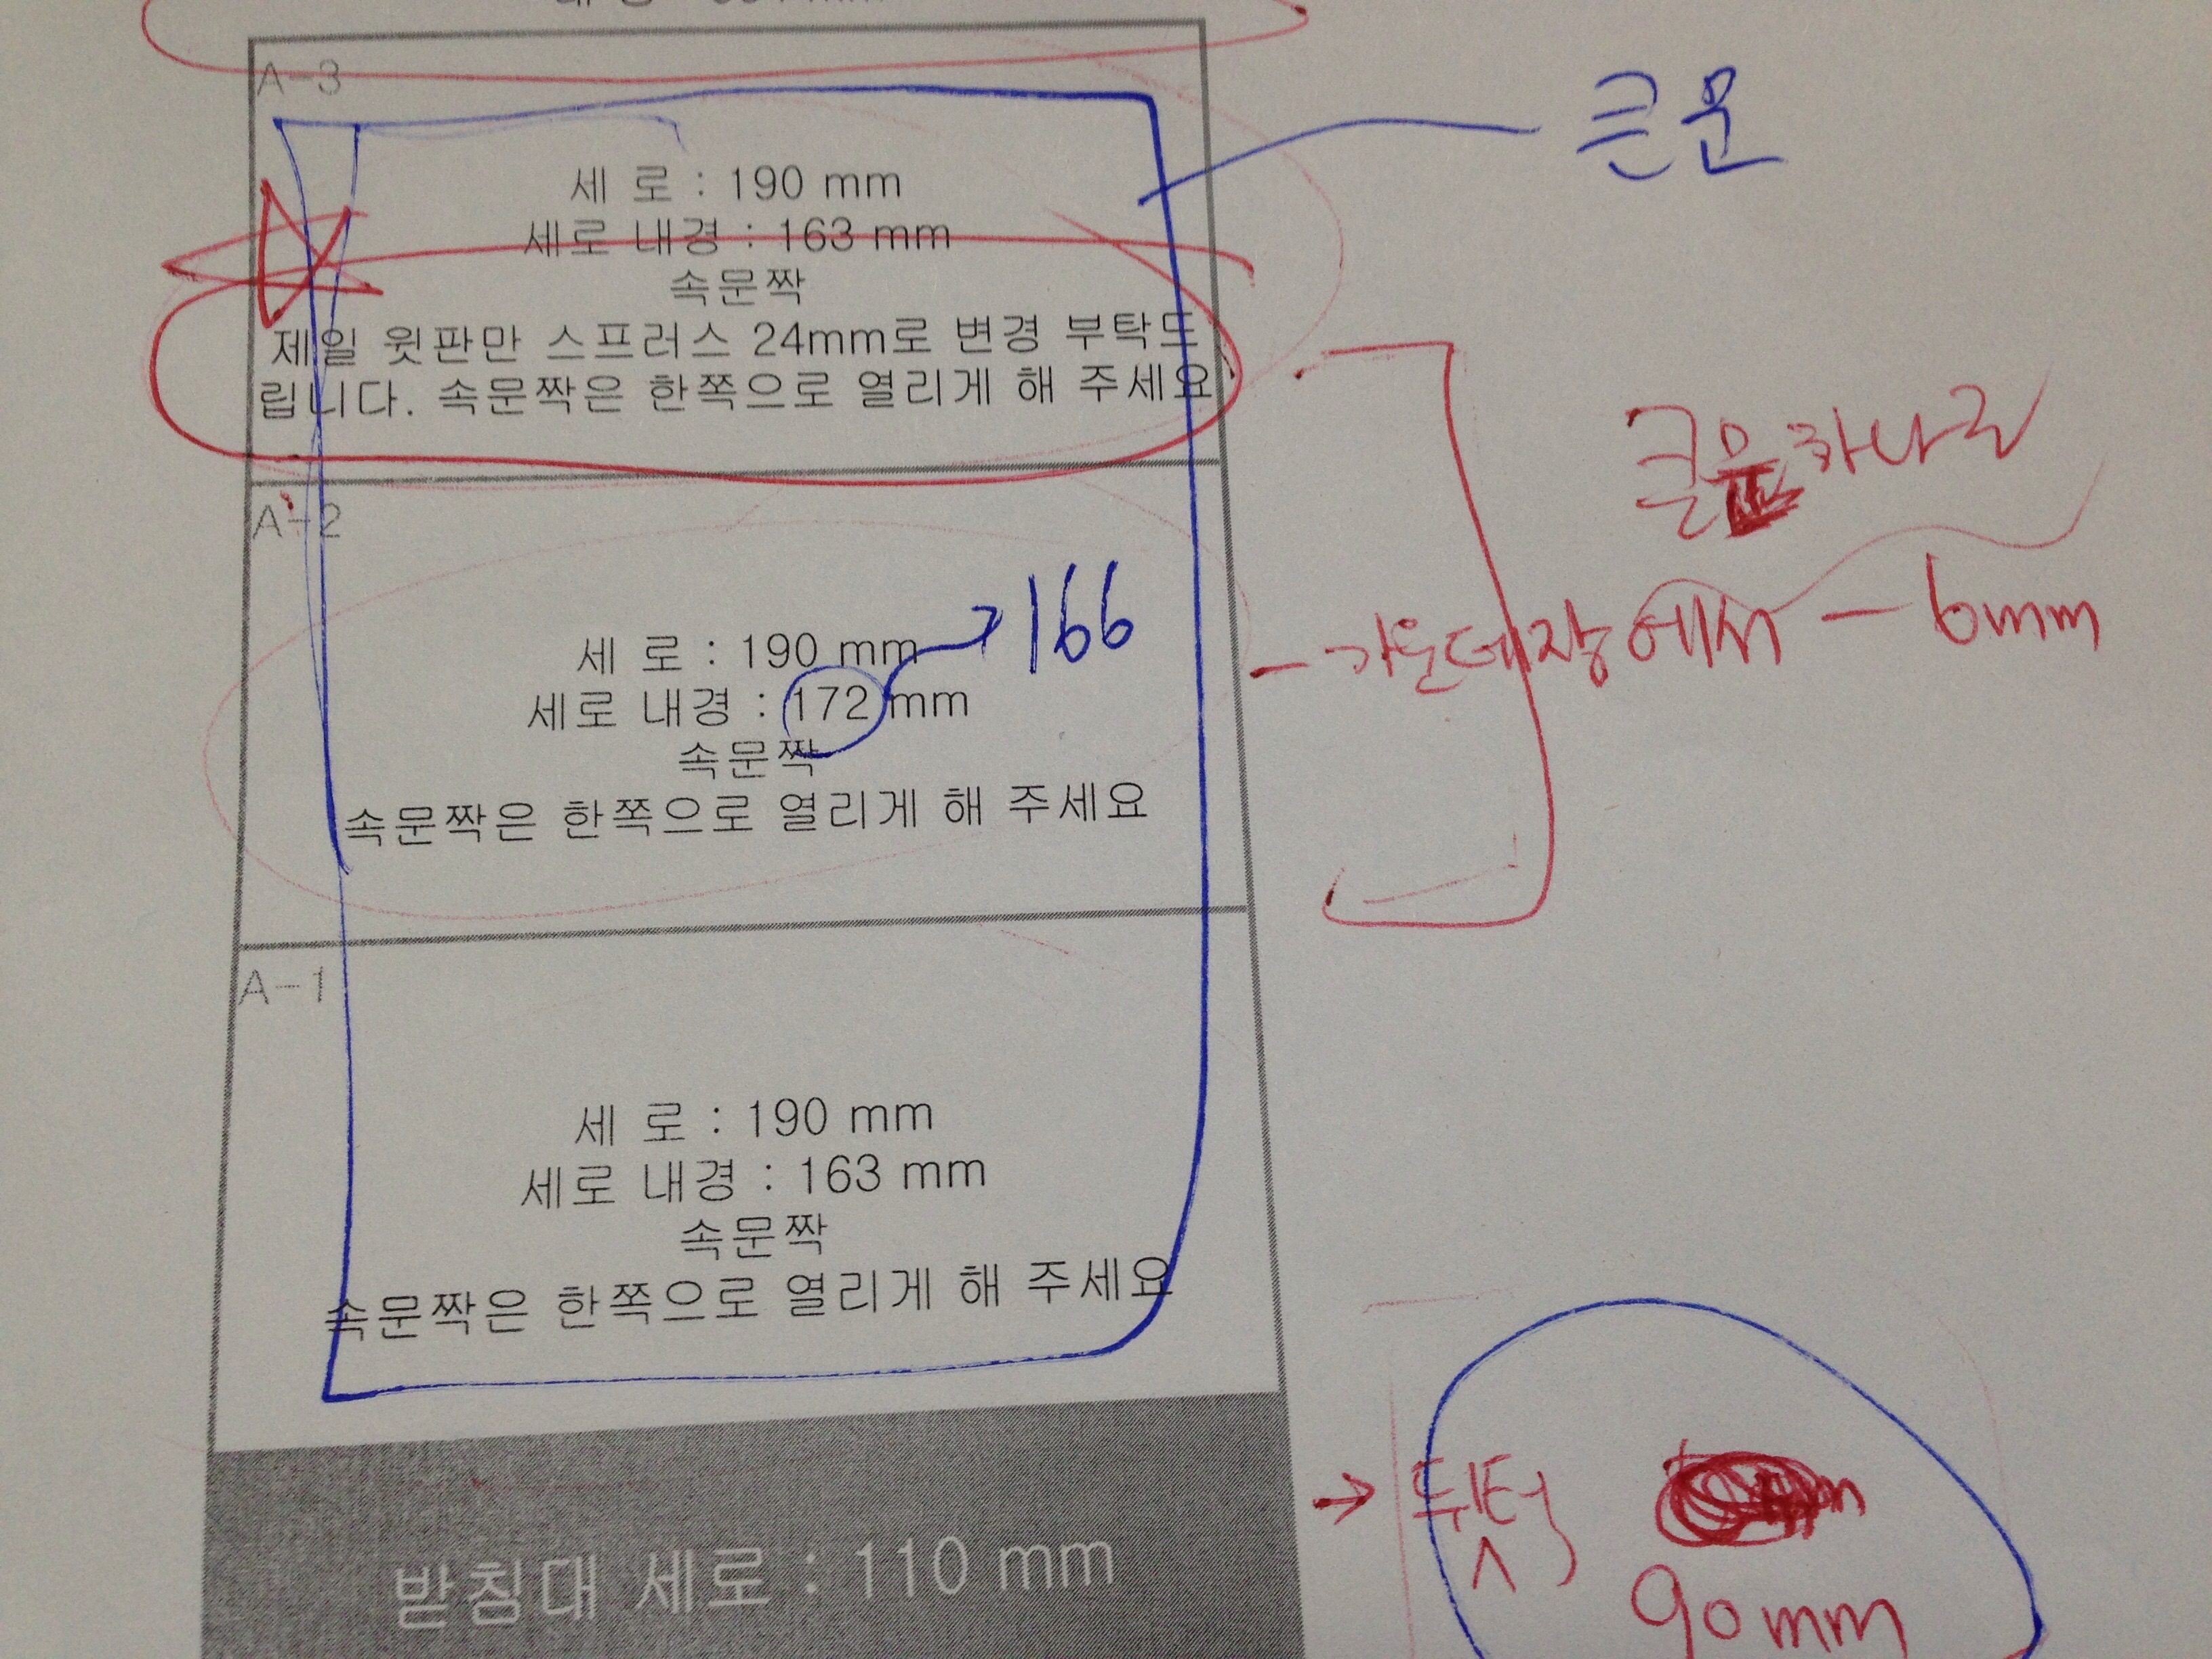 A-3
큰문
세 로 : 190 mm
세로 내경 : 163 mm
속문짝
제일 윗판만 스프러스 24mm로 변경 부탁드
립니다. 속문짝은 한쪽으로 열리게 해 주세요
큰문 하나로
A-2
세 로 : 190 mm → 166
세로 내경 : 172 mm
가운데장에서 - 6mm
속문짝
속문짝은 한쪽으로 열리게 해 주세요
A-1
세 로 : 190 mm
세로 내경 : 163 mm
속문짝
속문짝은 한쪽으로 열리게 해 주세요
받침대 세로 : 110 mm
→
90mm